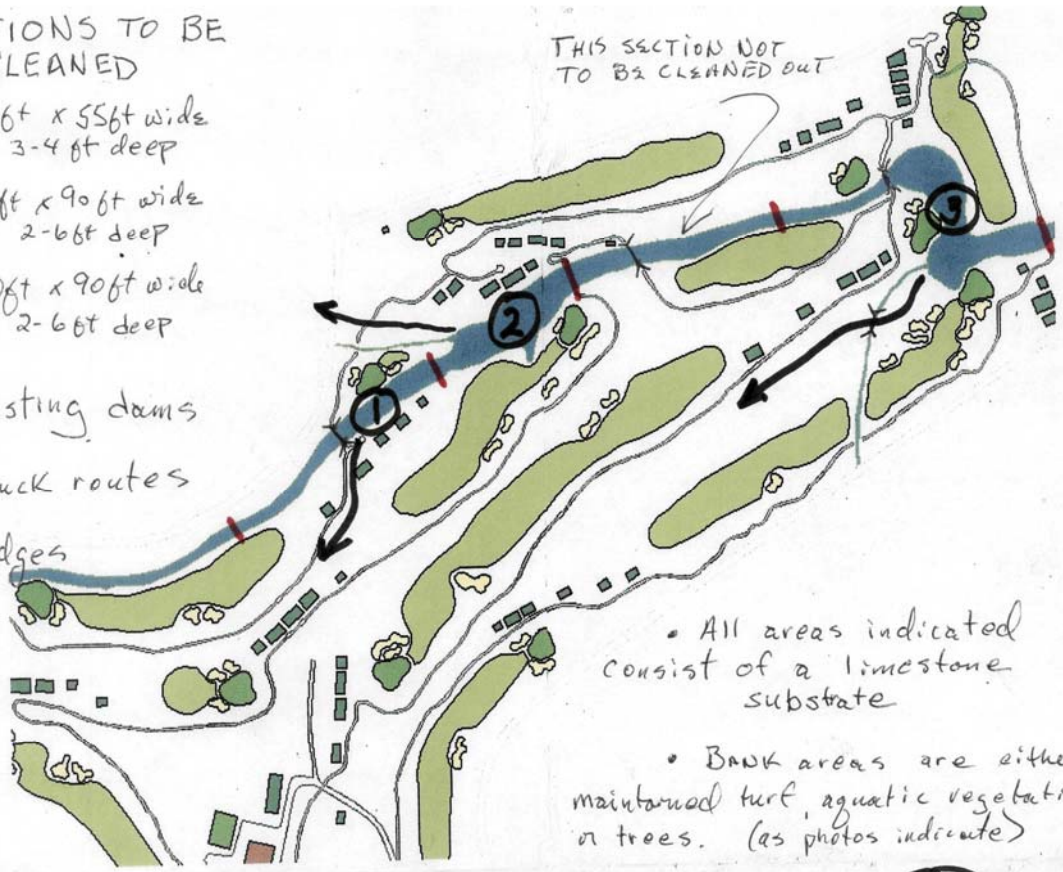 TIONS TO BE
LEANED
ft x 55ft wide
3-4 ft deep
ft x 90ft wide
2-6ft deep
0ft x 90ft wide
2-6ft deep
sting dams
uck routes
dges
THIS SECTION NOT
TO BE CLEANED OUT
1
2
3
• All areas indicated
consist of a limestone
substrate
• BANK areas are eithe
maintained turf, aquatic vegetati
or trees. (as photos indicate)